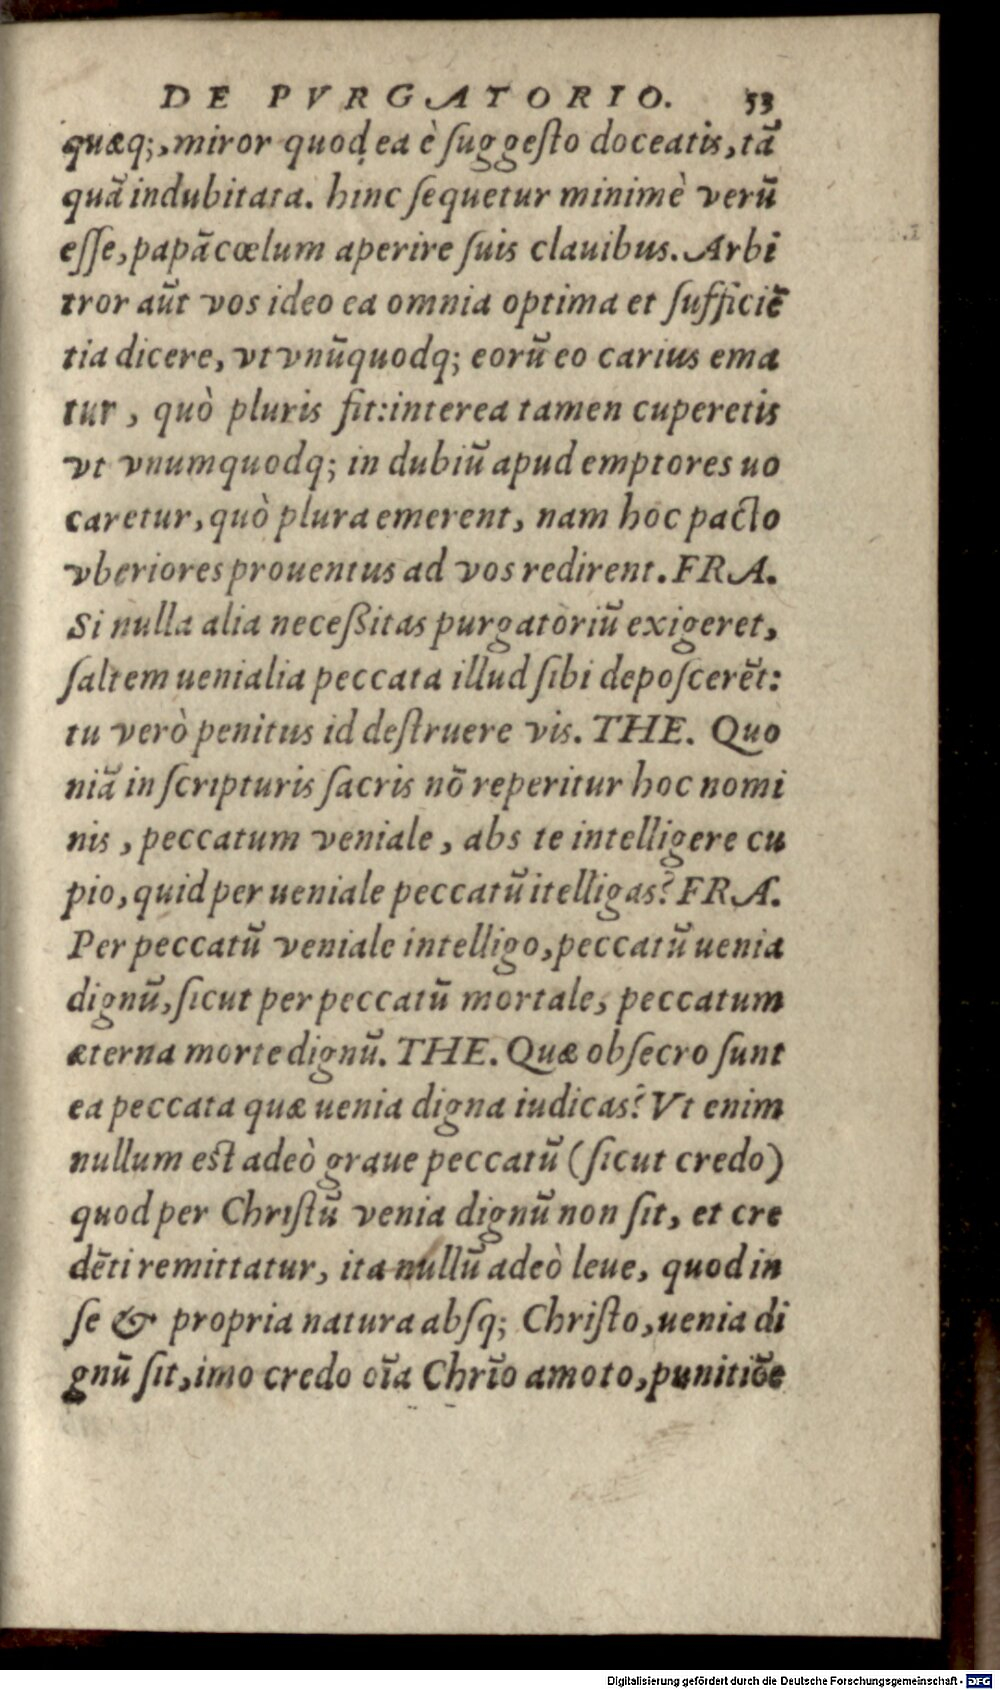 DE PVRGATORIO. 53
quæq;, miror quod ea è ſuggeſto doceatis, tã
quã indubitata. hinc ſequetur minimè verũ
eſſe, papã cœlum aperire ſuis clauibus. Arbi
tror aũt vos ideo ea omnia optima et ſufficiẽ
tia dicere, vt vnũquodq; eorũ eo carius ema
tur, quò pluris fit: interea tamen cuperetis
vt vnumquodq; in dubiũ apud emptores uo
caretur, quò plura emerent, nam hoc pacto
vberiores prouentus ad vos redirent. FRA.
Si nulla alia neceßitas purgatoriũ exigeret,
ſaltem uenialia peccata illud ſibi depoſcerẽt:
tu verò penitus id deſtruere vis. THE. Quo
niã in ſcripturis ſacris nõ reperitur hoc nomi
nis, peccatum veniale, abs te intelligere cu
pio, quid per ueniale peccatũ ĩtelligas? FRA.
Per peccatũ veniale intelligo, peccatũ uenia
dignũ, ſicut per peccatũ mortale, peccatum
æterna morte dignũ. THE. Quæ obſecro ſunt
ea peccata quæ uenia digna iudicas? Vt enim
nullum eſt adeò graue peccatũ (ſicut credo)
quod per Chriſtũ venia dignũ non ſit, et cre
dẽti remittatur, ita nullũ adeò leue, quod in
ſe & propria natura abſq; Chriſto, uenia di
gnũ ſit, imo credo oĩa Chrĩo amoto, punitiõe
Digitalisierung gefördert durch die Deutsche Forschungsgemeinschaft - DFG